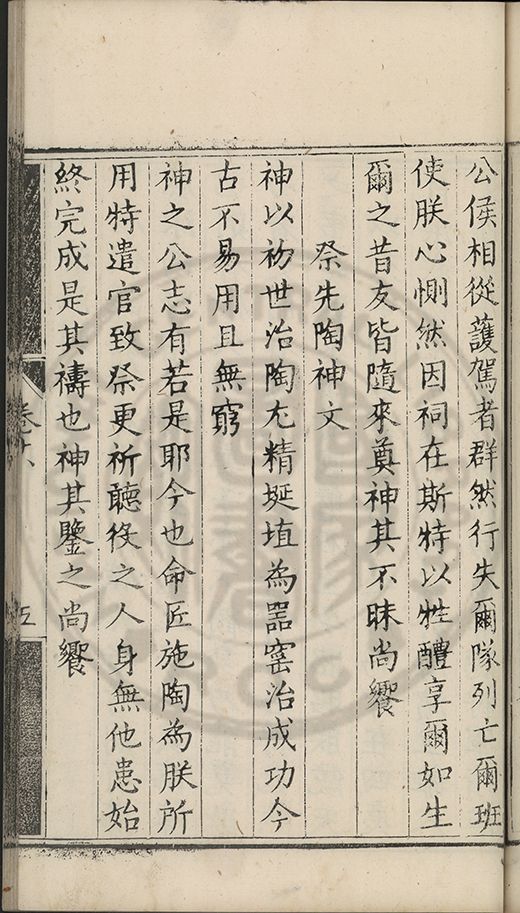 公侯相從護駕者群然行失爾隊列亡爾班
使朕心惻然因祠在斯特以牲醴享爾如生
爾之昔友皆隨來奠神其不昧尚饗
祭先陶神文
神以初世治陶尤精埏埴為器窰治成功今
古不易用且無窮
神之公志有若是耶今也命匠施陶為朕所
用特遣官致祭更祈聽役之人身無他患始
終完成是其禱也神其鑒之尚饗
卷十八
五